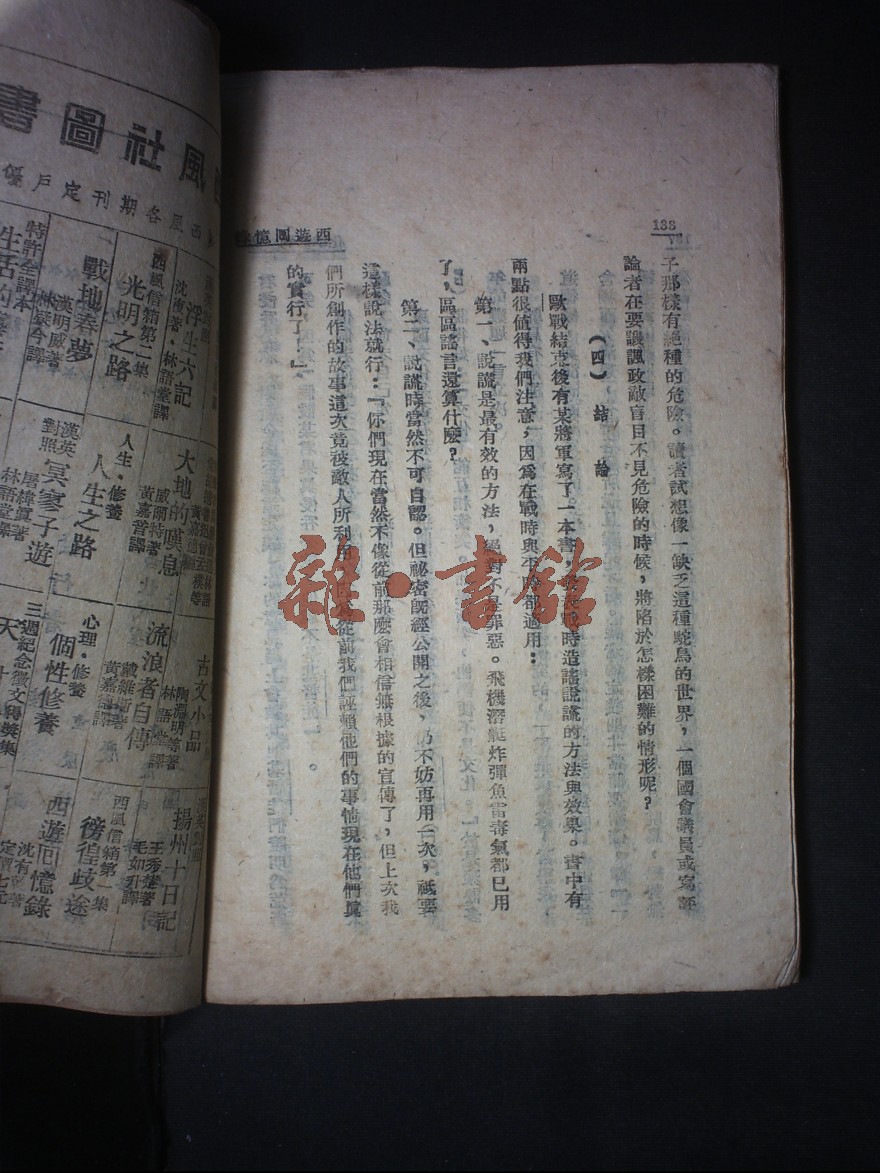 138
西遊回憶
子那樣有絕種的危險。讀者試想像一缺乏這種鴕鳥的世界，一個國會議員或寫評
論者在要譏諷政敵盲目不見危險的時候，將陷於怎樣困難的情形呢？
（四）結論
歐戰結束後有某將軍寫了一本書，戰時造謠說謊的方法與效果。書中有
兩點很值得我們注意，因爲在戰時與平時都適用：
第一、說謊是最有效的方法，絕對不是罪惡。飛機潛艇炸彈魚雷毒氣都已用
了，區區謠言還算什麼？
第二、說謊時當然不可自認。但祕密旣經公開之後，仍不妨再用一次，祇要
這樣說法就行：「你們現在當然不像從前那麼會相信無根據的宣傳了，但上次我
們所創作的故事這次竟被敵人所利用，從前我們誣賴他們的事情現在他們眞
的實行了！」
風社圖書
西風各期刊定戶優
浮生六記
沈復著・林語堂譯
西風信箱第二集
光明之路
戰地春夢
漢明威著
林疑今譯
特許全譯本
生活的
大地的嘆息
威爾特著
黃嘉音譯
人生・修養
人生之路
漢英對照
冥寥子遊
屠緯眞著
林語堂譯
古文小品
陶淵明等著
林語堂譯
流浪者自傳
戴維斯著
黃嘉德譯
心理・修養
個性修養
三週紀念徵文得獎集
天
揚州十日記
王秀楚著
毛如升譯
西風信箱第一集
徬徨歧途
西遊回憶錄
沈有
著
定價七元
雜・書館